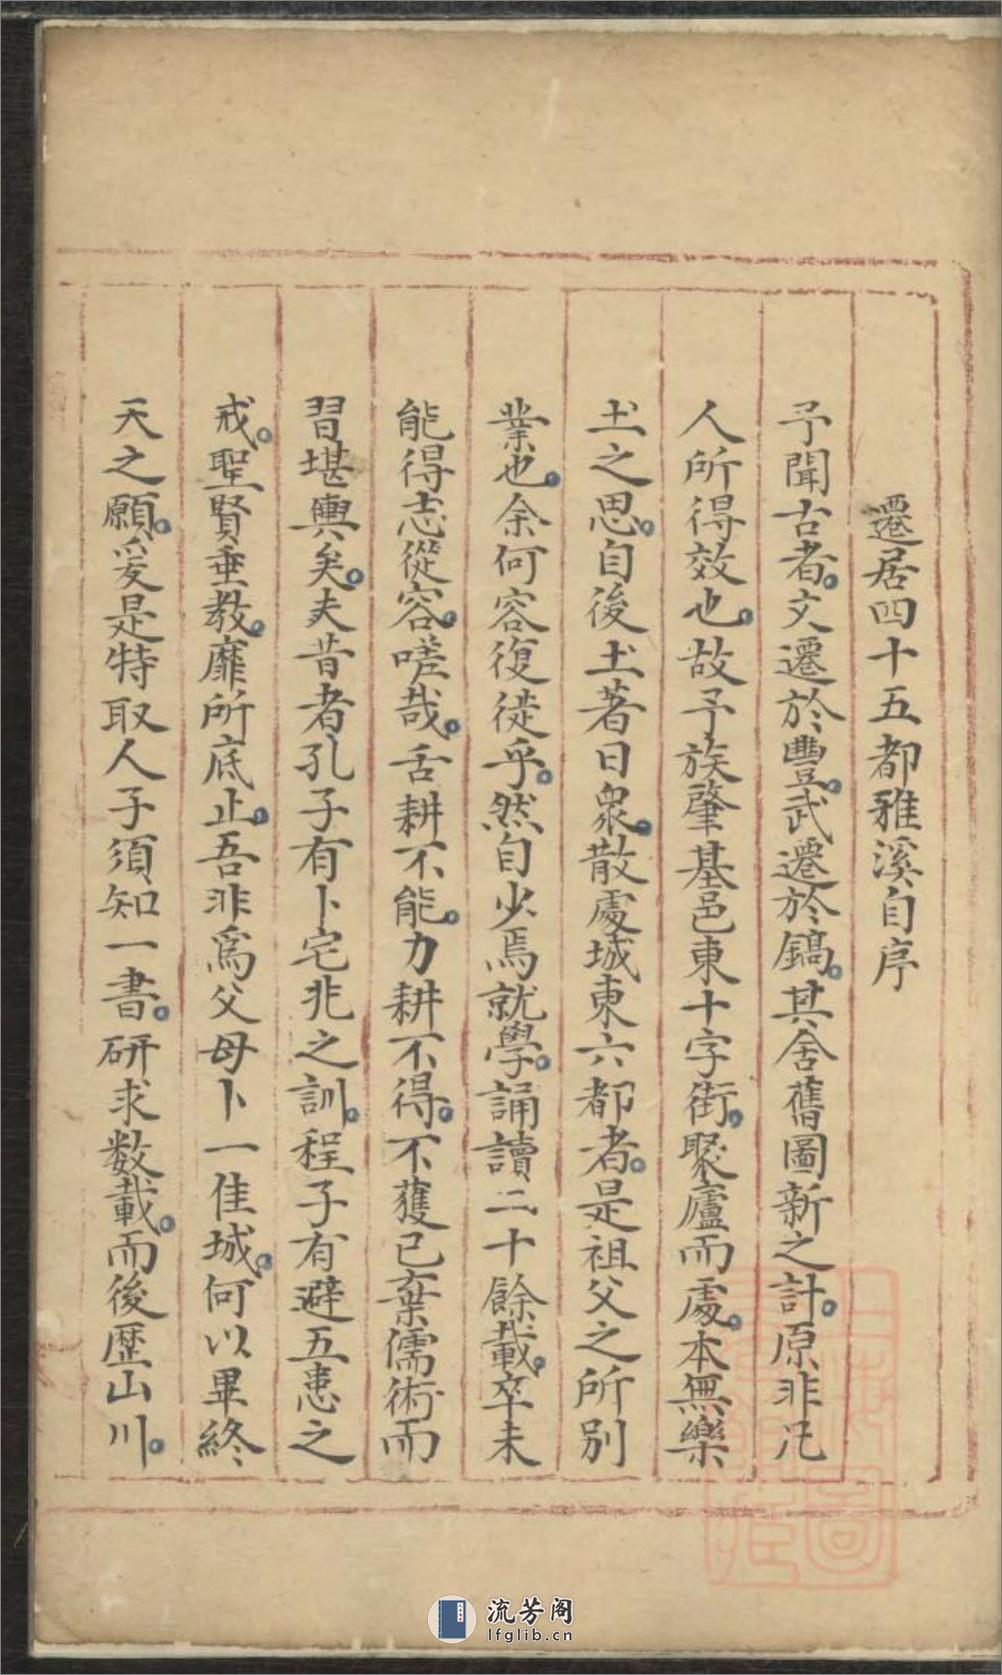 遷居四十五都雅溪自序
予聞古者。文遷於豐。武遷於鎬。其舍舊圖新之計。原非凡
人所得效也。故予族肇基邑東十字街。聚廬而處。本無樂
土之思。自後土著日衆。散處城東六都者。是祖父之所別
業也。余何容復徙乎。然自少焉就學。誦讀二十餘載。卒未
能得志從容。嗟哉。舌耕不能。力耕不得。不獲已棄儒術而
習堪輿矣。夫昔者孔子有卜宅兆之訓。程子有避五患之
戒。聖賢垂教。靡所底止。吾非爲父母卜一佳城。何以畢終
天之願。爰是特取人子須知一書。研求数載。而後歷山川。
流芳阁
lfglib.cn